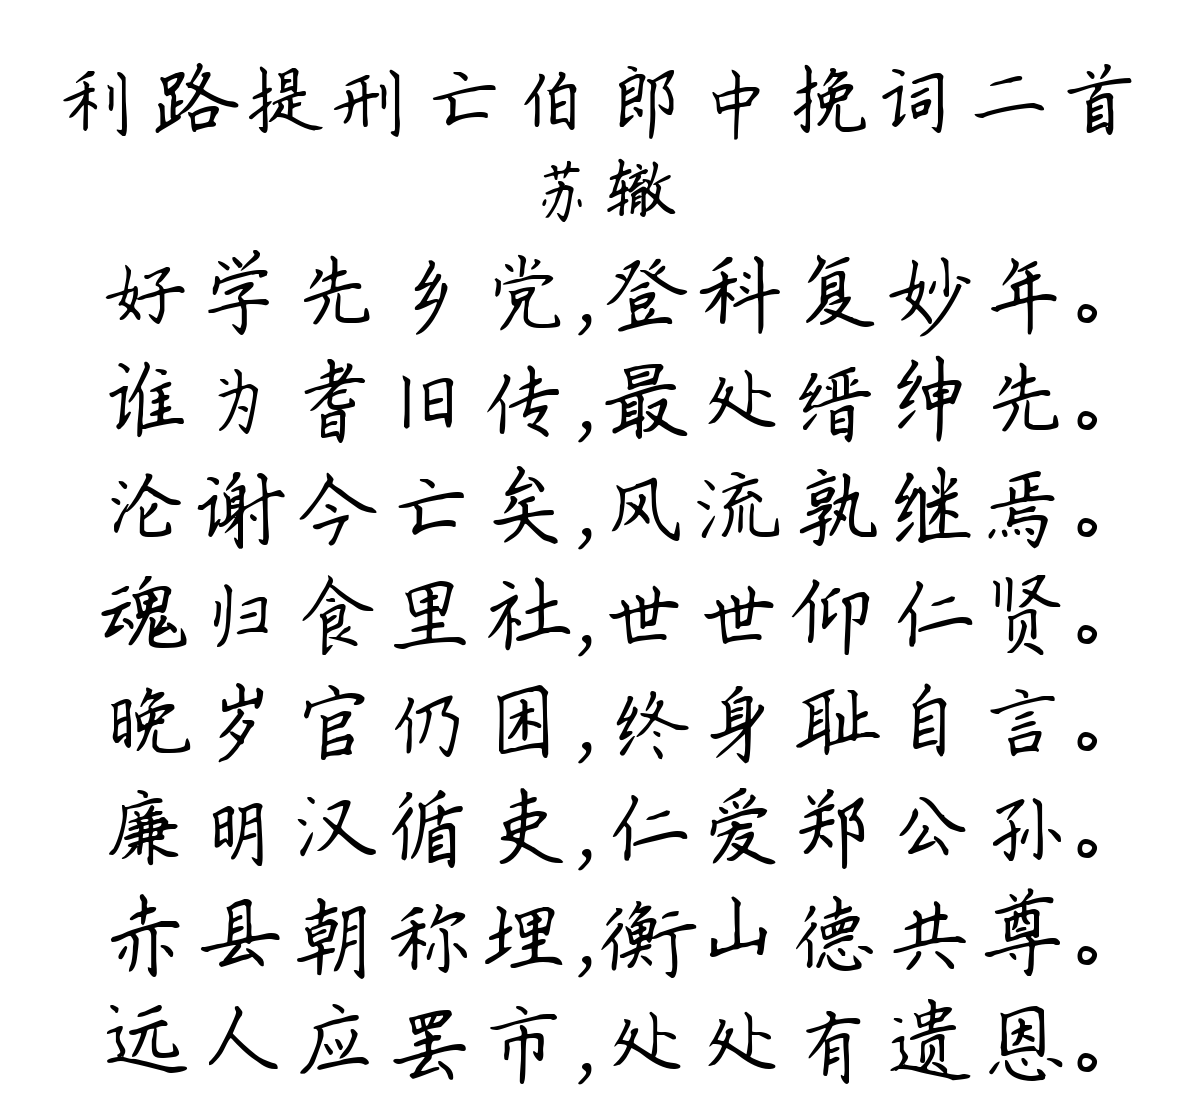 利路提刑亡伯郎中挽词二首
苏辙
好学先乡党,登科复妙年。
谁为耆旧传,最处缙绅先。
沦谢今亡矣,风流孰继焉。
魂归食里社,世世仰仁贤。
晚岁官仍困,终身耻自言。
廉明汉循吏,仁爱郑公孙。
赤县朝称埋,衡山德共尊。
远人应罢市,处处有遗恩。